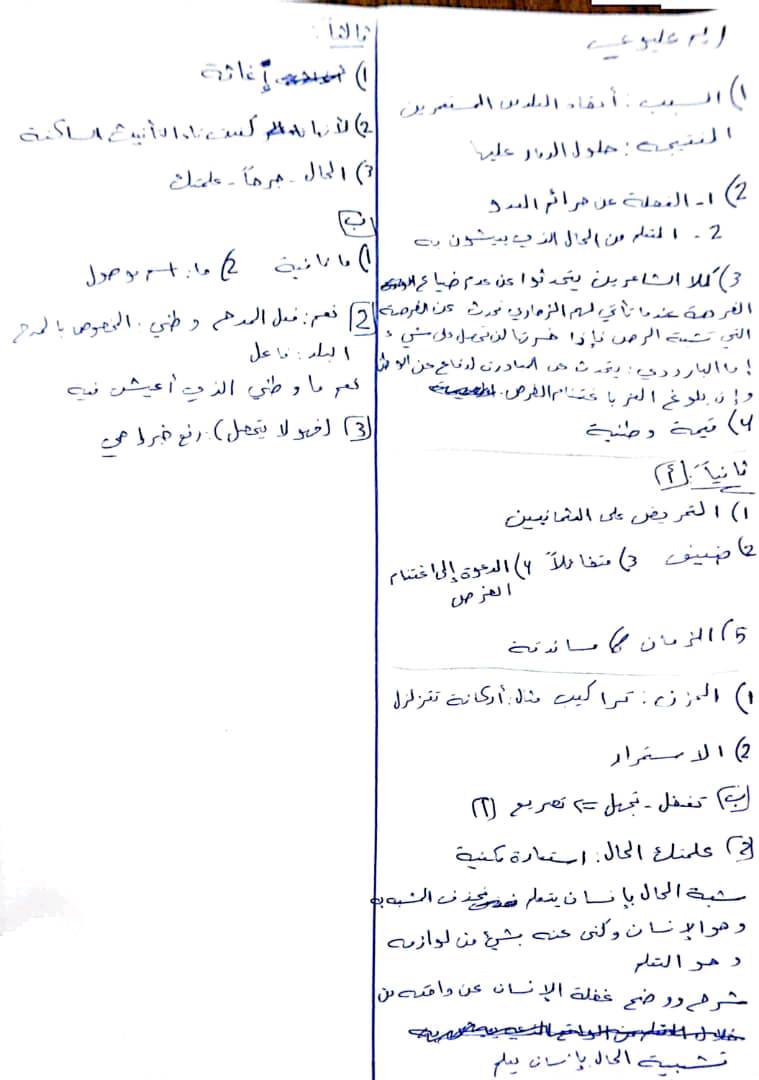 1) السبب: أنقاد البلدين المستعمرين
النتيجة: حلول الدمار عليها
2) 1- الغفلة عن جرائم العدو
2- التعلم من الحال الذي يعيشون به
3) كلا الشاعرين يتحدثوا عن عدم ضياع
الفرصة عندما تأتي لهم الزهاوي تحدث عن الفرصة
التي تشبه الرمن فإذا
إما البارودي: يتحدث عن المبادرة لدفاع عن الوطن
وإن بلوغ العز باغتنام الفرص
4) قيمة وطنية
ثانياً: أ
1) التحريض على العثمانيين
2) ضعيف 3) متفائلاً 4) الدعوة إلى اغتنام
الفرص
5) الزمان 6) مساندته
1) الحزن: تراكيب مثل: أركانه تتزلزل
2) الاستمرار
ب) تغفل - تجهل => تصريع (2)
3) علمتك الحال: استعارة مكنية
شبه الحال بإنسان يتعلم فحذف المشبه به
وهو الإنسان وكنى عنه بشيء من لوازمه
وهو التعلم
شرح ووضح غفلة الإنسان عن واقعه من
تشبيه الحال بإنسان يعلم
ثالثاً:
1) إغاثة
2) لأنها ليست تاء التأنيث الساكنة
3) الحال - جرحاً - علمتك
ب
1) ما نافية 2) ما: اسم موصول
2 نعم: فعل المدح وطني: المخصوص بالمدح
البلد: فاعل
نعم ما وطني الذي أعيش فيه
3 (فهو لا يجهل): رفع خبر لـ هي